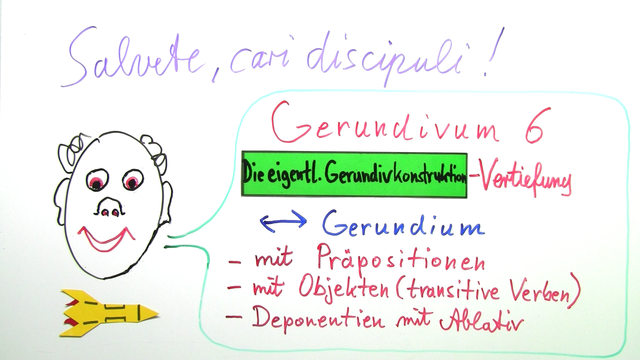 Salvete, cari discipuli!
Gerundivum 6
Die eigentl. Gerundivkonstruktion - Vertiefung
↔ Gerundium
- mit Präpositionen
- mit Objekten (transitive Verben)
- Deponentien mit Ablativ